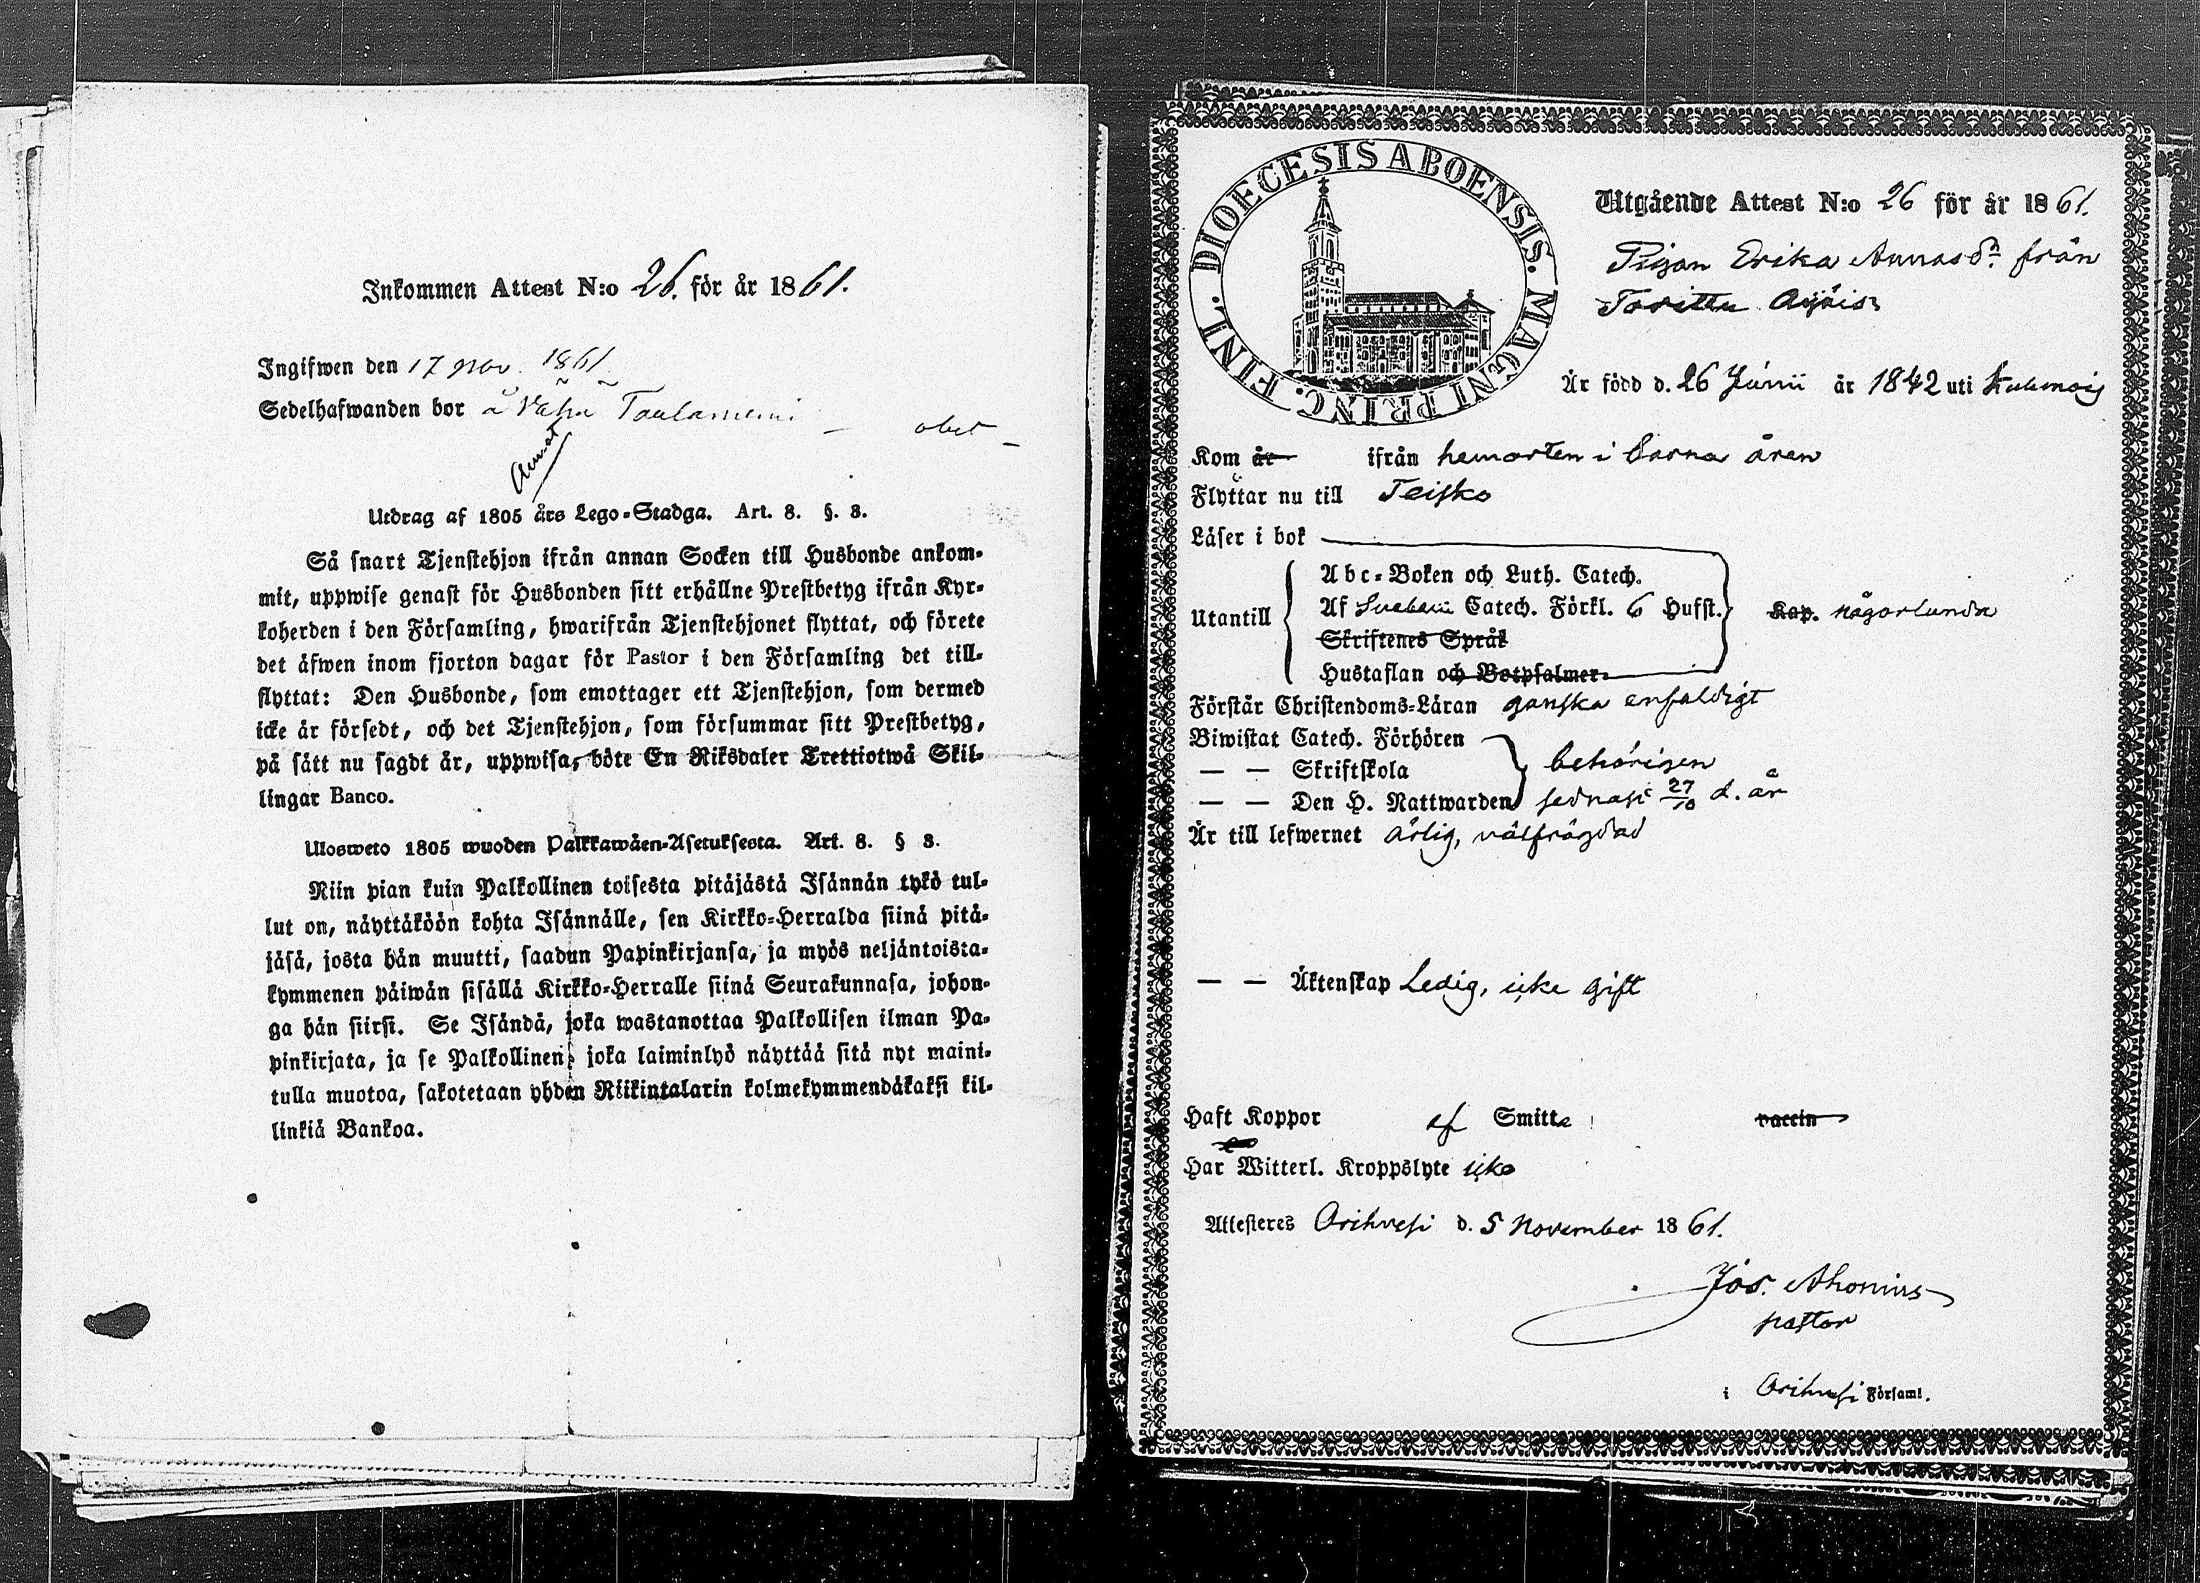 Inkommen Attest N:o 26. för år 1861.
Ingifwen den 17 nov. 1861.
Sedelhafwanden bor å Vähä Taulaniemi
Utdrag af 1805 års Lego-Stadga. Art. 8. §. 8.
Så snart Tjenstehjon ifrån annan Socken till Husbonde ankom-
mit, uppwise genast för Husbonden sitt erhållne Prestbetyg ifrån Kyr-
koherden i den Församling, hwarifrån Tjenstehjonet flyttat, och förete
det äfwen inom fjorton dagar för Pastor i den Församling det till-
flyttat: Den Husbonde, som emottager ett Tjenstehjon, som dermed
icke är försedt, och det Tjenstehjon, som försummar sitt Prestbetyg,
på sätt nu sagdt är, uppwisa, böte En Riksdaler Trettiotwå Skil-
lingar Banco.
Ulosweto 1805 wuoden Palkkawäen-Asetuksesta. Art. 8. § 8.
Niin pian kuin Palkollinen toisesta pitäjästä Isännän tykö tul-
lut on, näyttäköön kohta Isännälle, sen Kirkko-Herralda siinä pitä-
jäsä, josta hän muutti, saadun Papinkirjansa, ja myös neljäntoista-
kymmenen päiwän sisällä Kirkko-Herralle siinä Seurakunnasa, johon-
ga hän siirsi. Se Isändä, joka wastanottaa Palkollisen ilman Pa-
pinkirjata, ja se Palkollinen, joka laiminlyö näyttää sitä nyt maini-
tulla muotoa, sakotetaan yhden Riikintalarin kolmekymmendäkaksi kil-
linkiä Bankoa.
DIOECESIS ABOENSIS. MAGNI PRINC. FINL.
Utgående Attest N:o 26 för år 1861.
Pigan Erika Annasdr från
Är född d. 26 Junii år 1842 uti Kuhmois
Kom år ifrån hemorten i barna åren
Flyttar nu till Teisko
Läser i bok
Abc-Boken och Luth. Catech.
Utantill Af Svebelii Catech. Förkl. 6 Hufst. Kap. någorlunda
Skriftenes Språk
Hustaflan och Botpsalmer
Förstår Christendoms-Läran ganska enfaldigt
Biwistat Catech. Förhören
— — Skriftskola behörigen
— — Den H. Nattwarden sednast 27/10 d. år
Är till lefwernet ärlig, välfrägdad
— — Äktenskap Ledig, icke gift
Haft Koppor af Smitta vaccin
Har Witterl. Kroppslyte icke
Attesteres Orihvesi d. 5 November 1861.
Jos. Ahonius
pastor
i Orihvesi Församl.